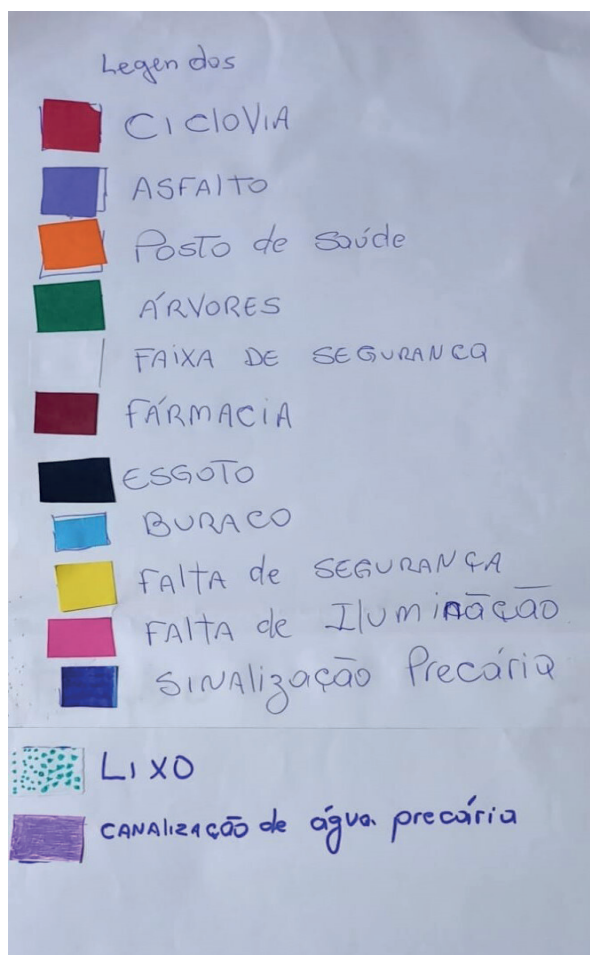 Legendos
CICLOVIA
ASFALTO
Posto de Saúde
ÁRVORES
FAIXA DE SEGURANCA
FÁRMACIA
ESGOTO
BURACO
FALTA de SEGURANÇA
FALTA de Iluminação
SINAlização Precária
LIXO
CANAlização de água precária